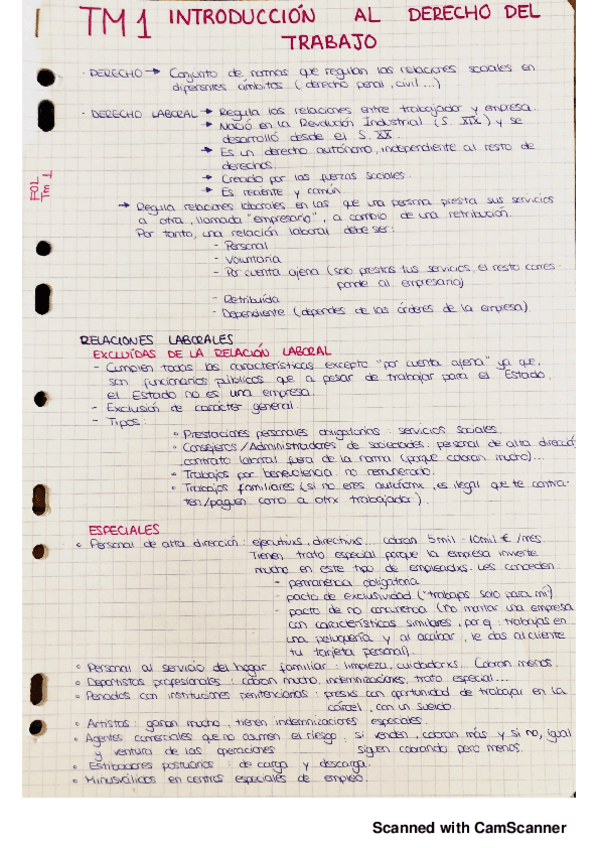 TM 1 INTRODUCCIÓN AL DERECHO DEL
TRABAJO
· DERECHO → Conjunto de normas que regulan las relaciones sociales en
diferentes ámbitos (derecho penal, civil...)
· DERECHO LABORAL → Regula las relaciones entre trabajador y empresa.
→ Nació en la Revolución Industrial (S. XIX) y se
desarrolló desde el S. XX.
→ Es un derecho autónomo, independiente al resto de
derechos.
→ Creado por las fuerzas sociales.
→ Es reciente y común.
FOL
Tm 1
→ Regula relaciones laborales en las que una persona presta sus servicios
a otra, llamada "empresario", a cambio de una retribución.
Por tanto, una relación laboral debe ser:
- Personal
- Voluntaria
- Por cuenta ajena (solo prestas tus servicios, el resto corres-
ponde al empresario)
- Retribuída
- Dependiente (dependes de las órderes de la empresa)
RELACIONES LABORALES
EXCLUÍDAS DE LA RELACIÓN LABORAL
- Cumplen todas las características excepto "por cuenta ajena" ya que,
son funcionarios públicos que a pesar de trabajar para el Estado,
el Estado no es una empresa.
- Exclusión de carácter general.
- Tipos:
• Prestaciones personales obligatorias: servicios sociales.
• Consejeros / Administradores de sociedades: personal de alta direcció
contrato laboral fuera de la norma (porque cobran mucho)...
• Trabajos por benevolencia: no remunerado.
• Trabajos familiares (si no eres autónomx, es legal que te contra-
ten/paguen como a otrx trabajador).
ESPECIALES
• Personal de alta dirección: ejecutivxs, directivxs... cobran 5mil - 10mil € /mes.
Tienen trato especial porque la empresa invierte
mucho en este tipo de empleadxs. Les conceden:
- permanencia obligatoria
- pacto de exclusividad ("trabajas solo para mi")
- pacto de no concurrencia (no montar una empresa
con características similares, por ej: trabajas en
una peluquería y al acabar, le das al cliente
tu tarjeta personal).
• Personal al servicio del hogar familiar: limpieza, cuidadorxs... Cobran menos.
• Deportistas profesionales: cobran mucho, indemnizaciones, trato especial...
• Penados con instituciones penitenciarias: presxs con oportunidad de trabajar en la
cárcel, con un sueldo.
• Artistas: ganan mucho, tienen indemnizaciones especiales.
• Agentes comerciales que no asumen el riesgo: si venden, cobran más y si no, igual
y ventura de las operaciones siguen cobrando pero menos.
• Estibadores portuarios: de carga y descarga.
• Minusválidos en centros especiales de empleo.
Scanned with CamScanner